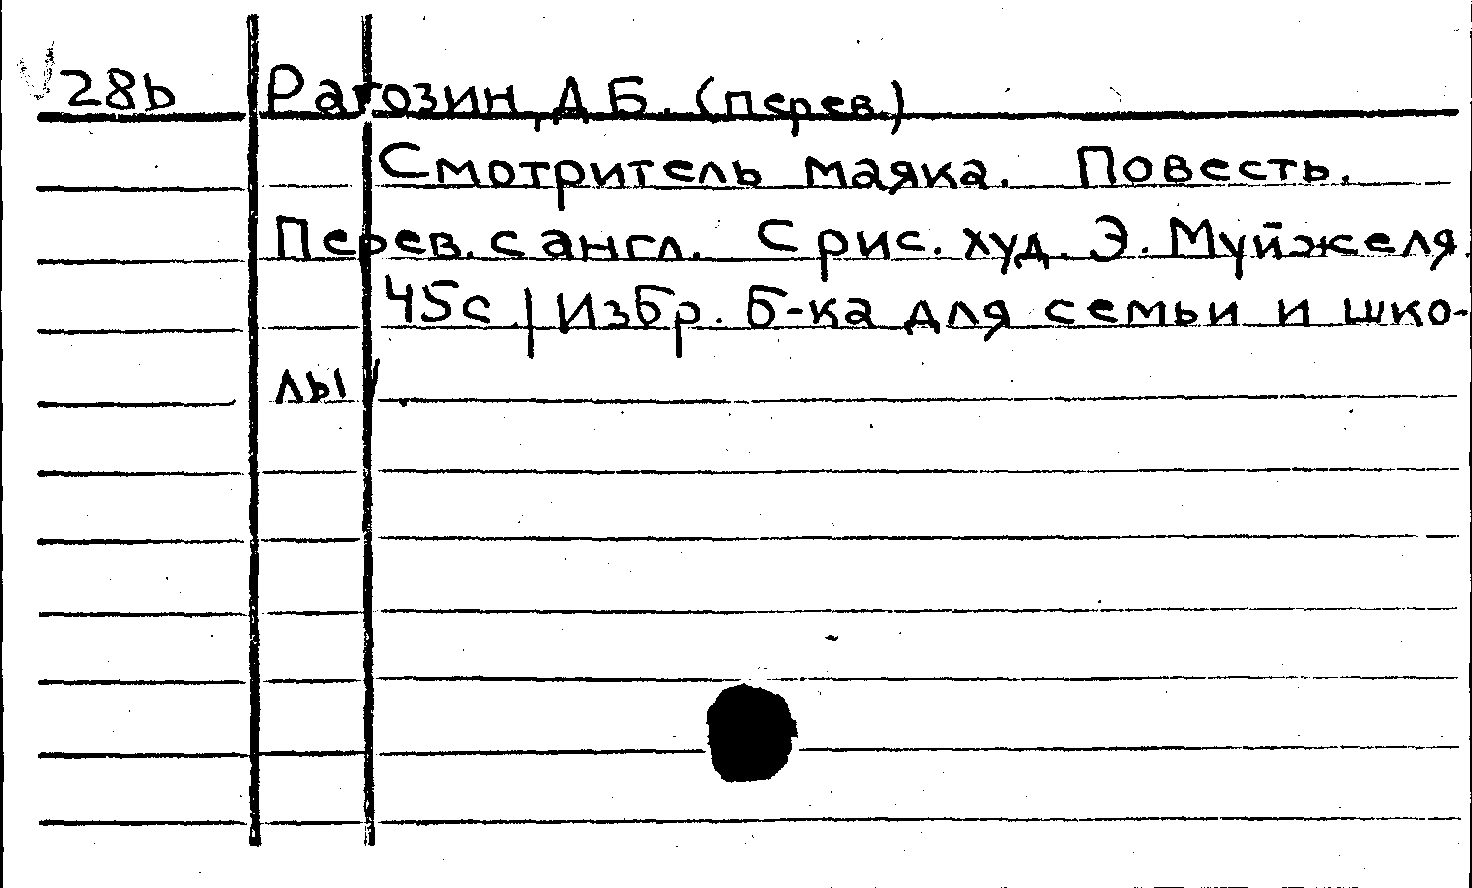 28b Рагозин, Д Б. (перев.)
Смотритель маяка. Повесть.
Перев. с англ. С рис. худ. Э. Муйжеля.
45с. | Избр. б-ка для семьи и шко-
лы /.